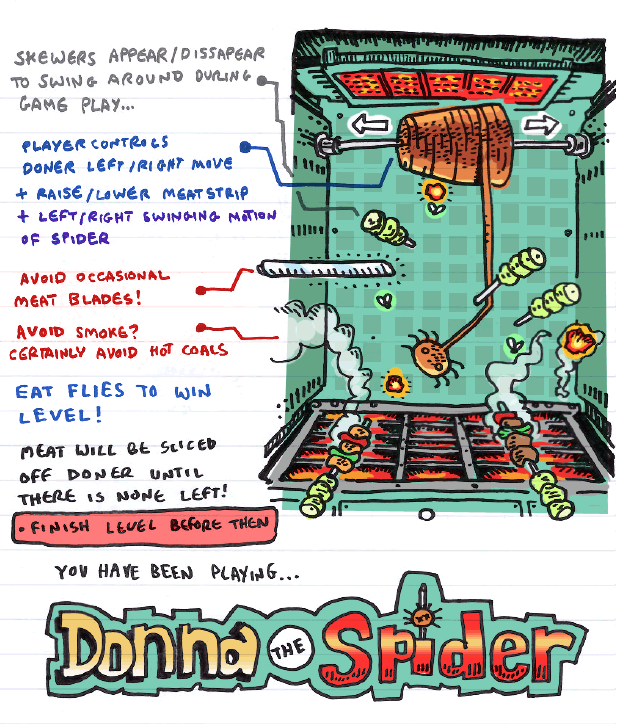 SKEWERS APPEAR/DISSAPEAR
TO SWING AROUND DURING
GAME PLAY...
PLAYER CONTROLS
DONER LEFT/RIGHT MOVE
+ RAISE/LOWER MEAT STRIP
+ LEFT/RIGHT SWINGING MOTION
OF SPIDER
AVOID OCCASIONAL
MEAT BLADES!
AVOID SMOKE?
CERTAINLY AVOID HOT COALS
EAT FLIES TO WIN
LEVEL!
MEAT WILL BE SLICED
OFF DONER UNTIL
THERE IS NONE LEFT!
• FINISH LEVEL BEFORE THEN
YOU HAVE BEEN PLAYING...
Donna THE Spider